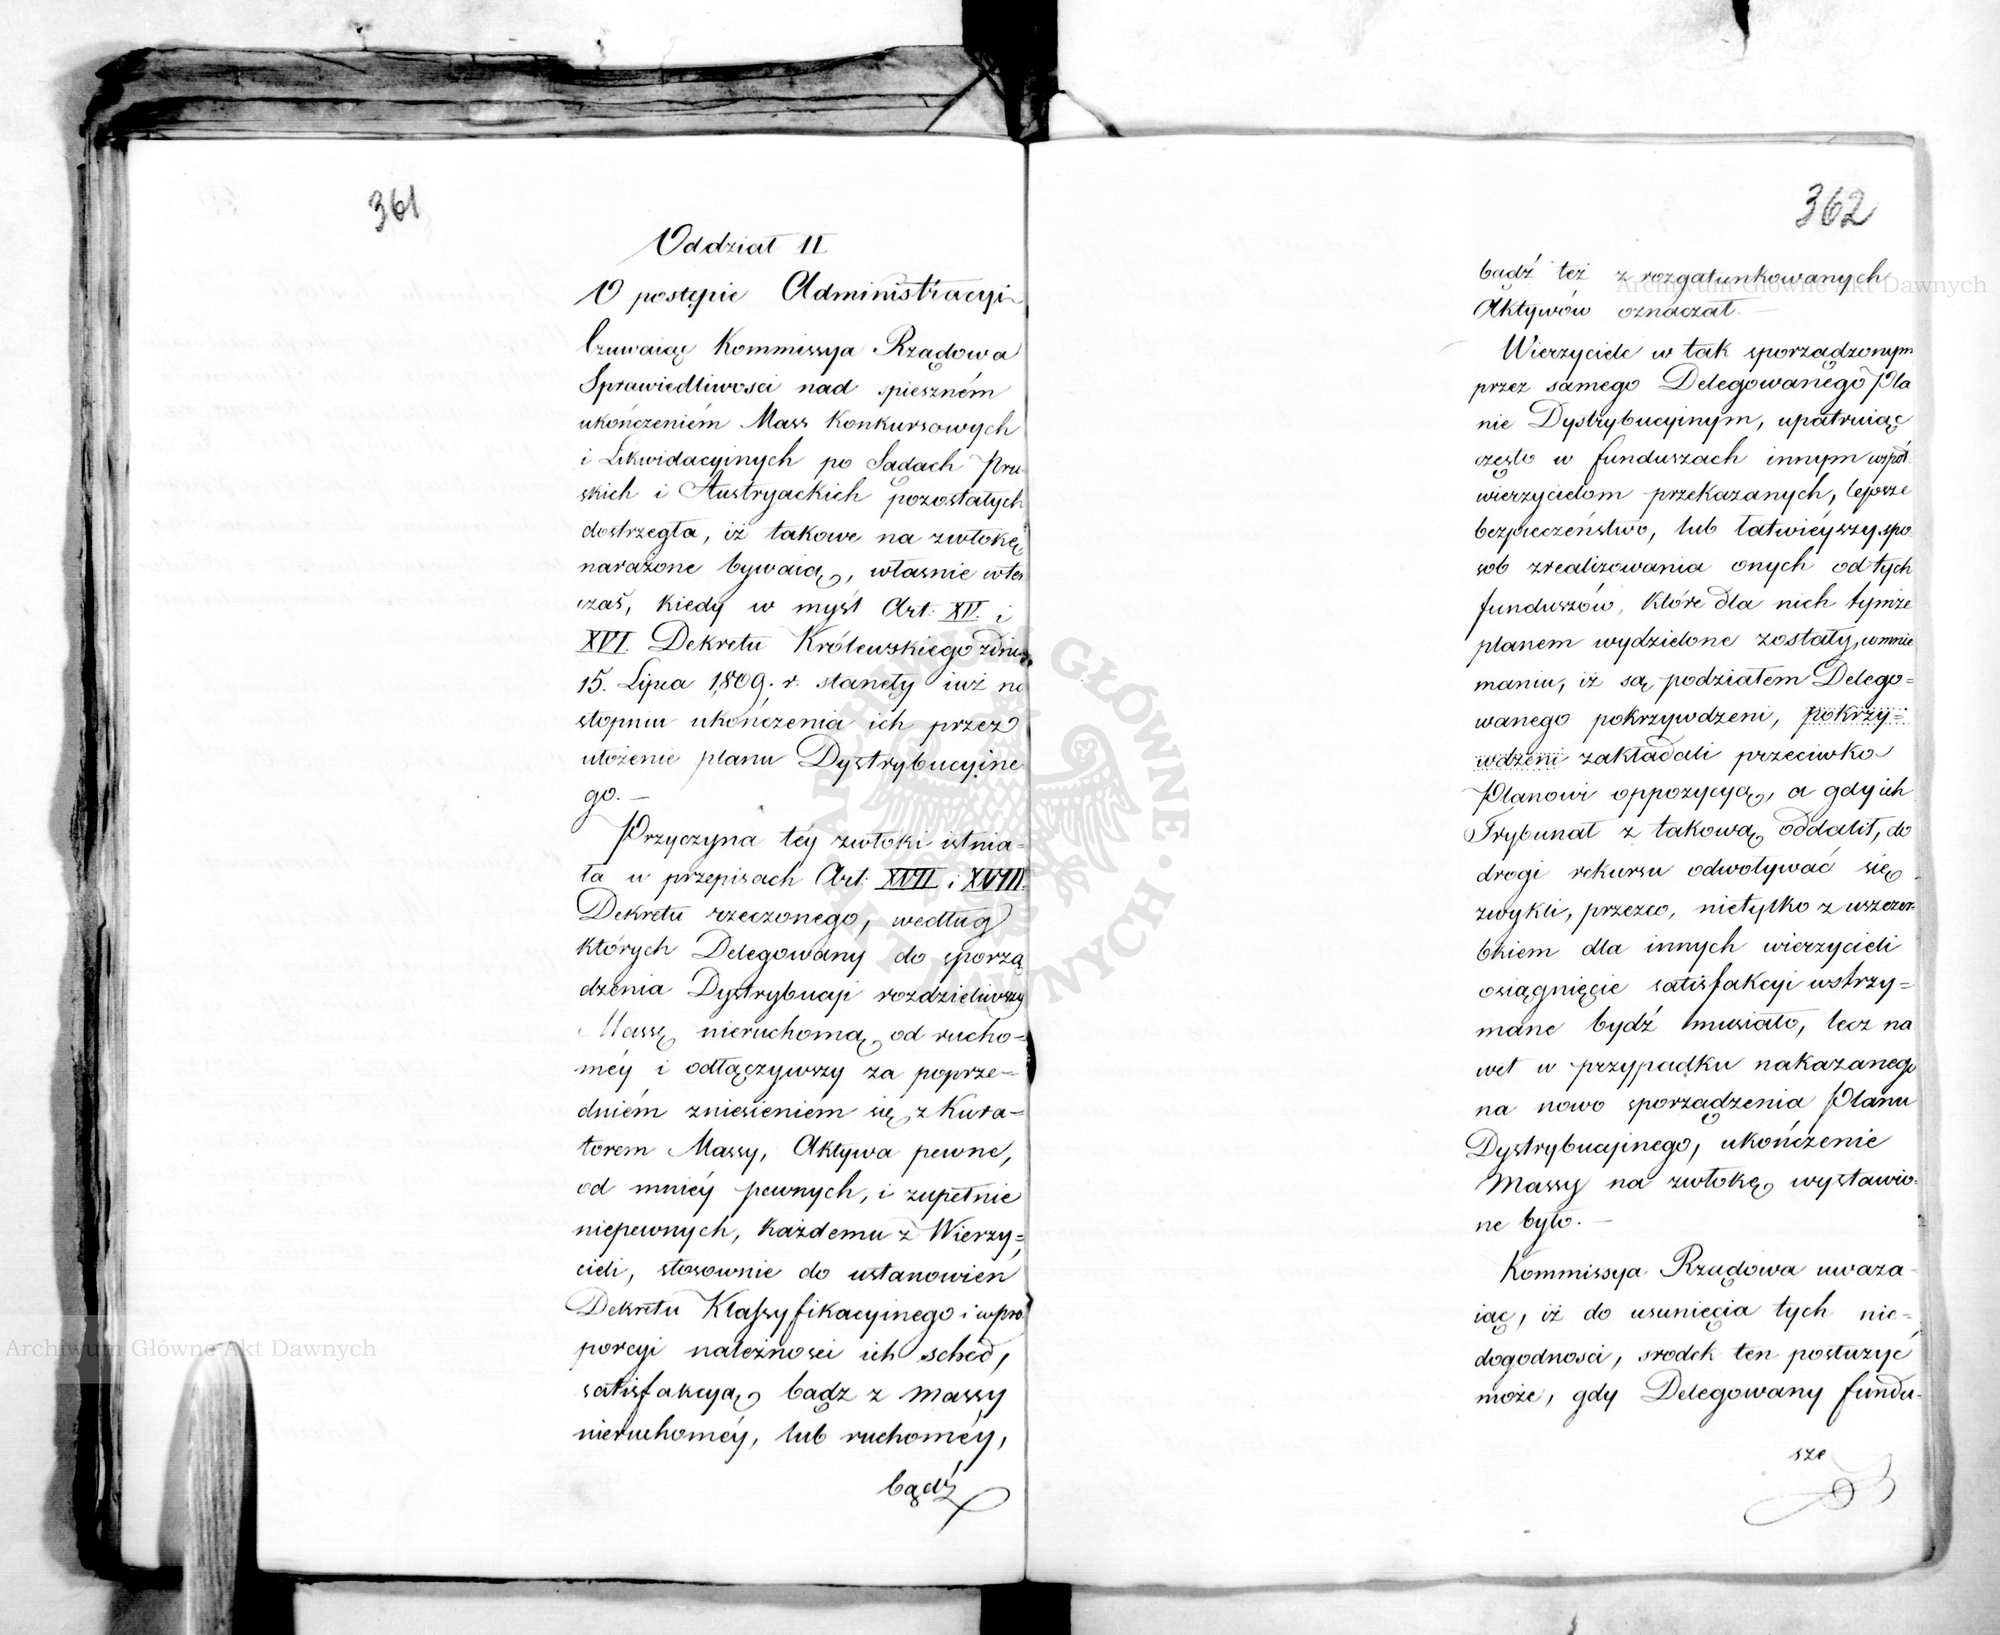 361
Oddział II
O postępie Administracyi
Czuwaiąc Kommissya Rządowa
Sprawiedliwosci nad spieszném
ukończeniém Mass Konkursowych
i Likwidacyjnych po Sądach Pru-
skich i Austryackich pozostałych
dostrzegła, iż takowe na zwłokę
narażone bywaią, własnie wten
czas, kiedy w myśl Art: XV. i
XVI. Dekretu Królewskiego z dnia
15. Lipca 1809. r. stanęły iuż na
stopniu ukończenia ich przez
ułożenie planu Dystrybucyine
go. —
Przyczyna téy zwłoki istnia-
ła w przepisach Art: XVII i XVIII.
Dekretu rzeczonego, według
których Delegowany do sporzą
dzenia Dystrybucyi rozdzieliwszy
Massę nieruchomą od rucho=
méy i odłączywszy za poprze=
dniém zniesieniem się z Kura=
torem Massy, Aktywa pewne,
od mniéy pewnych, i zupełnie
niepewnych, każdemu z Wierzy=
cieli, stosownie do ustanowień
Dekretu Klassyfikacyinego i w pro
porcyi należności ich sched,
satisfakcyą, bądz z massy
nieruchoméy, lub ruchoméy,
bądź
362
bądź też z rozgatunkowanych
Aktywów oznaczał. —
Wierzyciele w tak sporządzonym
przez samego Delegowanego Pla
nie Dystrybucyinym, upatruiąc
często w funduszach innym współ-
wierzycielom przekazanych, lepsze
bezpieczeństwo, lub łatwiéyszy spo-
sob zrealizowania onych od tych
funduszów, które dla nich tymże
planem wydzielone zostały, w mnie
maniu, iż są podziałem Delego=
wanego pokrzywdzeni, pokrzy=
wdzeni zakładali przeciwko
Planowi oppozycyą, a gdy ich
Trybunał z takową oddalił, do
drogi rekursu odwoływać się
zwykli, przezco, nietylko z uszczer-
bkiem dla innych wierzycieli
osiągnięcie satisfakcyi wstrzy=
mane bydź musiało, lecz na
wet w przypadku nakazanego
na nowo sporządzenia Planu
Dystrybucyinego, ukończenie
Massy na zwłokę wystawio-
ne było. —
Kommissya Rządowa uwaza-
iąc, iż do usunięcia tych nie-
dogodnosci, srodek ten posłużyć
może, gdy Delegowany fundu-
sze
Archiwum Główne Akt Dawnych
Archiwum Główne Akt Dawnych
ARCHIWUM GŁÓWNE AKT DAWNYCH